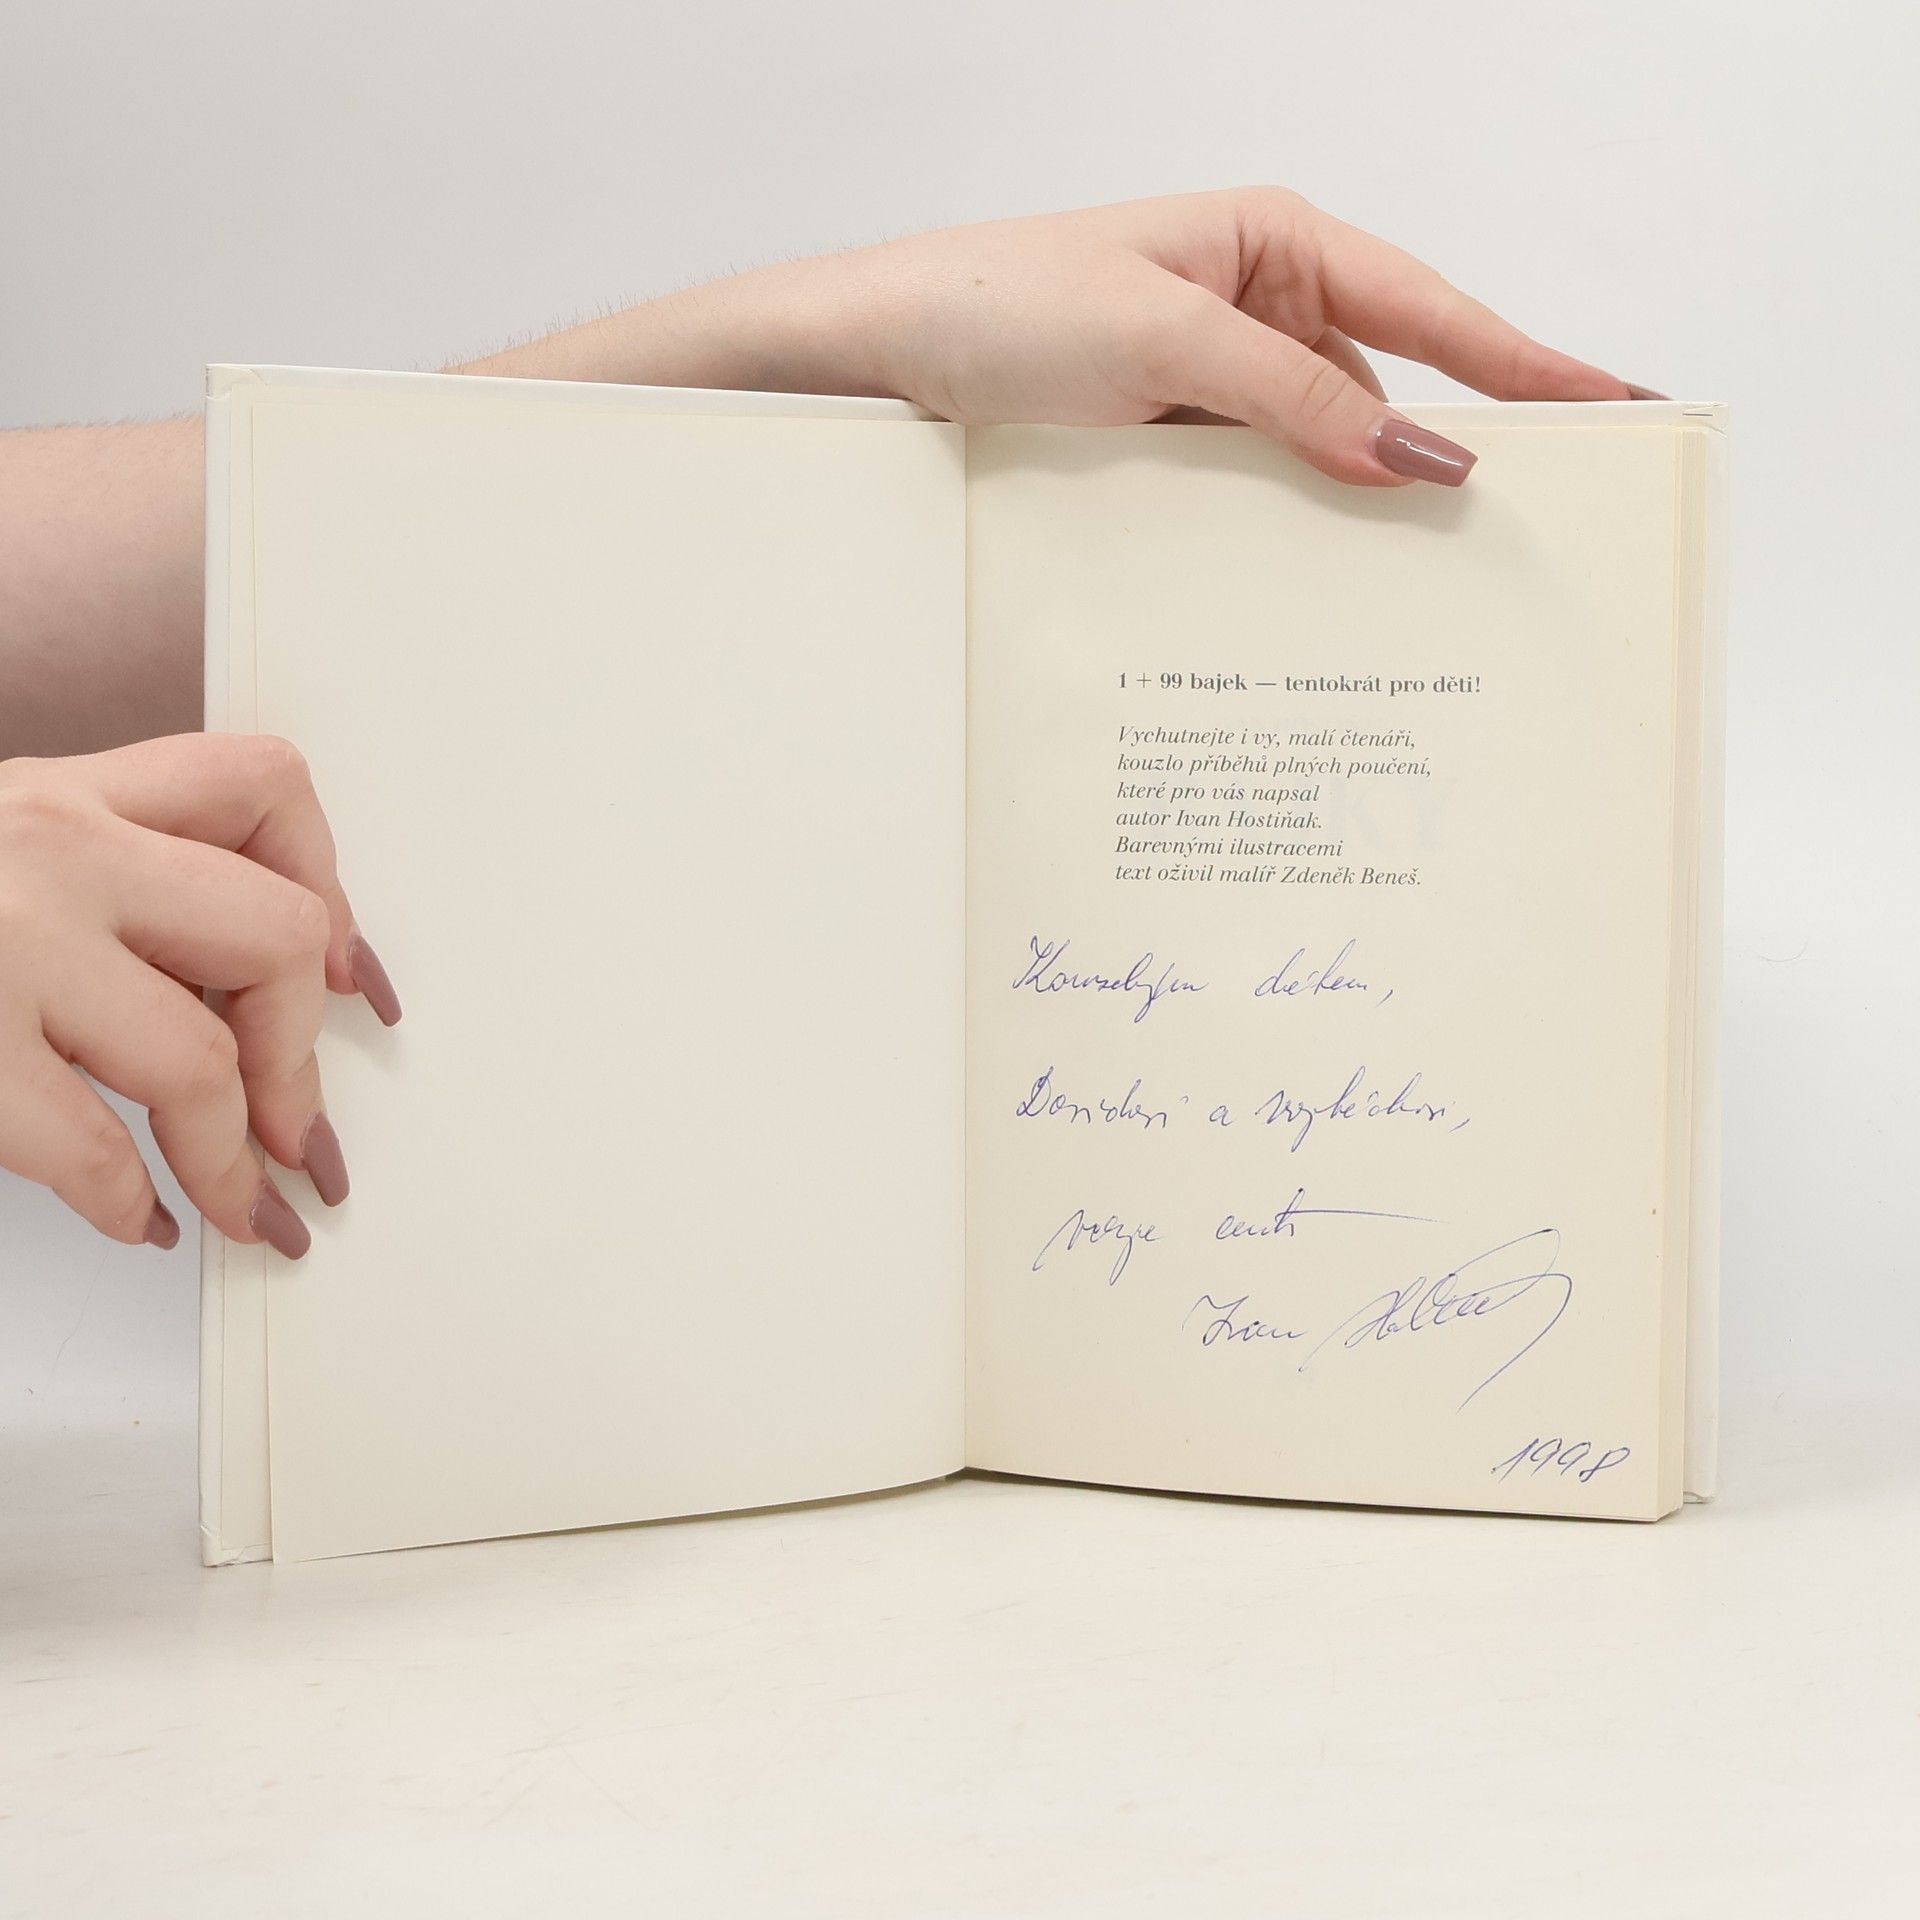 1 + 99 bajek — tentokrát pro děti!
Vychutnejte i vy, malí čtenáři,
kouzlo příběhů plných poučení,
které pro vás napsal
autor Ivan Hostiňak.
Barevnými ilustracemi
text oživil malíř Zdeněk Beneš.
Kouzelným dětem,
Davidovi a
Ivan
1998